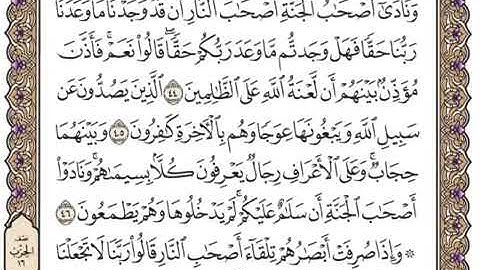 وَنَادَىٰٓ أَصْحَٰبُ ٱلْجَنَّةِ أَصْحَٰبَ ٱلنَّارِ أَن قَدْ وَجَدْنَا مَا وَعَدَنَا
رَبُّنَا حَقًّا فَهَلْ وَجَدتُّم مَّا وَعَدَ رَبُّكُمْ حَقًّا ۖ قَالُوا۟ نَعَمْ ۚ فَأَذَّنَ
مُؤَذِّنٌۢ بَيْنَهُمْ أَن لَّعْنَةُ ٱللَّهِ عَلَى ٱلظَّٰلِمِينَ ٤٤ ٱلَّذِينَ يَصُدُّونَ عَن
سَبِيلِ ٱللَّهِ وَيَبْغُونَهَا عِوَجًا وَهُم بِٱلْءَاخِرَةِ كَٰفِرُونَ ٤٥ وَبَيْنَهُمَا
حِجَابٌ ۚ وَعَلَى ٱلْأَعْرَافِ رِجَالٌ يَعْرِفُونَ كُلًّۢا بِسِيمَىٰهُمْ ۚ وَنَادَوْا۟
أَصْحَٰبَ ٱلْجَنَّةِ أَن سَلَٰمٌ عَلَيْكُمْ ۚ لَمْ يَدْخُلُوهَا وَهُمْ يَطْمَعُونَ ٤٦
۞ وَإِذَا صُرِفَتْ أَبْصَٰرُهُمْ تِلْقَآءَ أَصْحَٰبِ ٱلنَّارِ قَالُوا۟ رَبَّنَا لَا تَجْعَلْنَا
نصف
الحزب
١٦